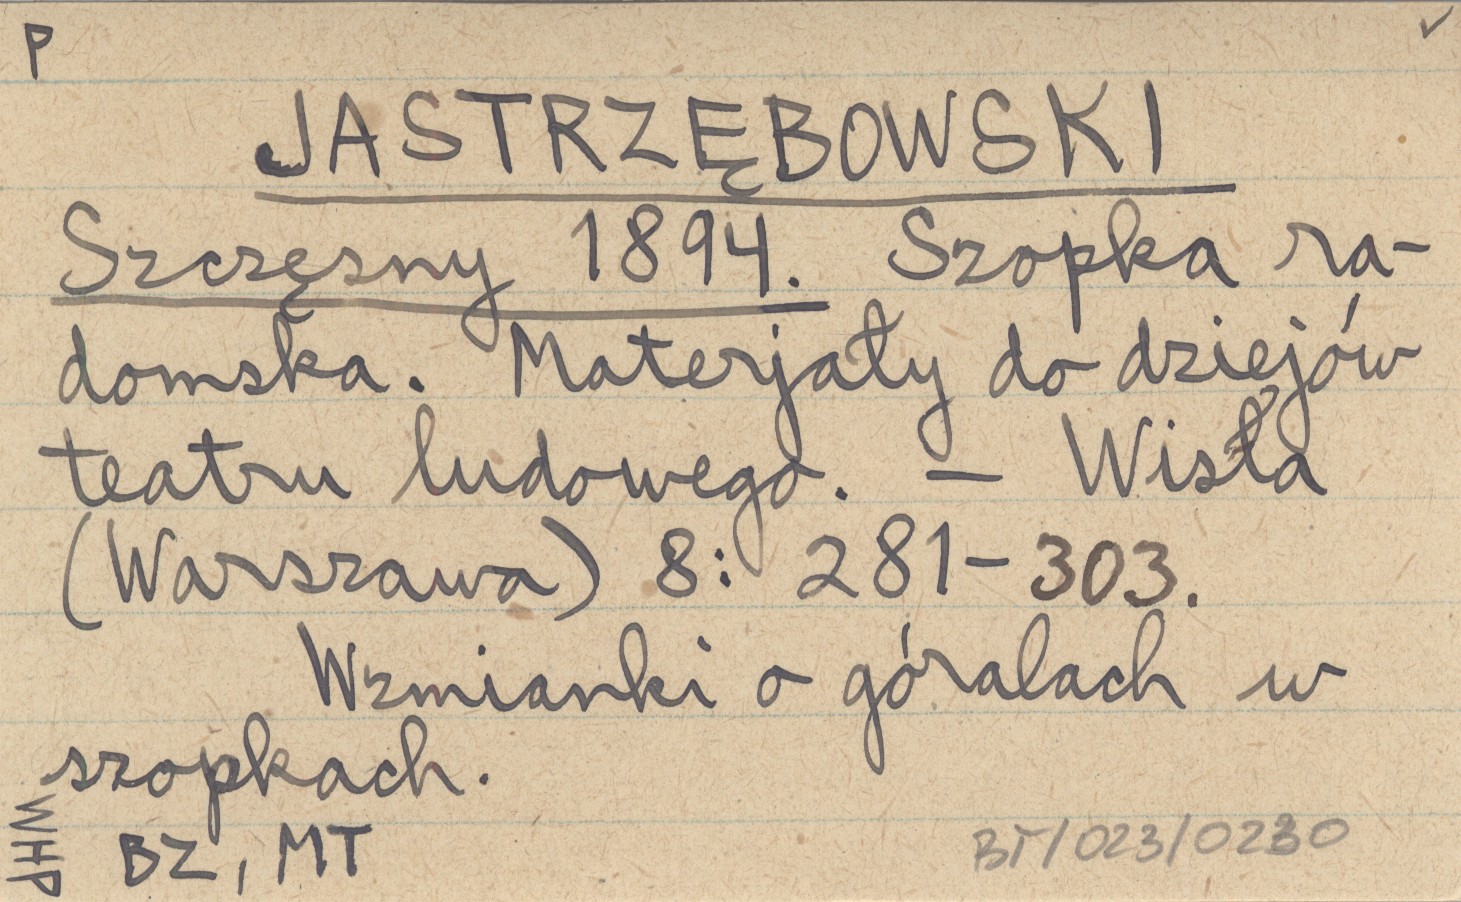 P
JASTRZĘBOWSKI
Szczęsny 1894. Szopka ra-
domska. Materjały do dziejów
teatru ludowego. — Wisła
(Warszawa) 8: 281-303.
Wzmianki o góralach w
szopkach.
WHP
BZ, MT
BT/023/0230